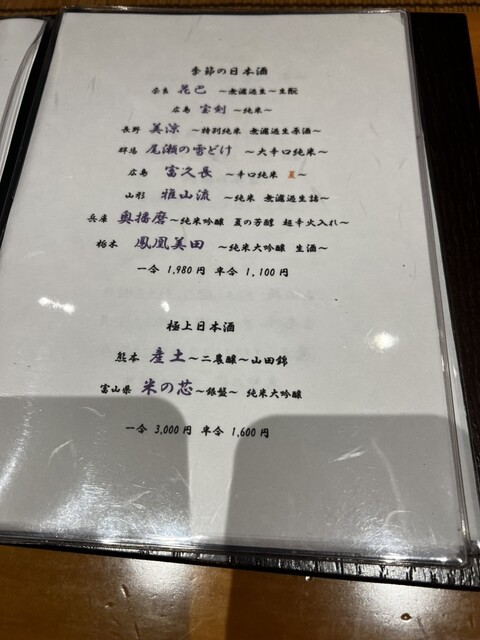 季節の日本酒
奈良 花巴 ～無濾過生～生酛
広島 宝剣 ～純米～
長野 美涼 ～特別純米 無濾過生原酒～
群馬 尾瀬の雪どけ ～大辛口純米～
広島 富久長 ～辛口純米 夏～
山形 雅山流 ～純米 無濾過生詰～
兵庫 奥播磨～純米吟醸 夏の芳醇 超辛火入れ～
栃木 鳳凰美田 ～純米大吟醸 生酒～
一合 1,980円 半合 1,100円
極上日本酒
熊本 産土～二農醸～山田錦
富山県 米の芯～銀盤～ 純米大吟醸
一合 3,000円 半合 1,600円